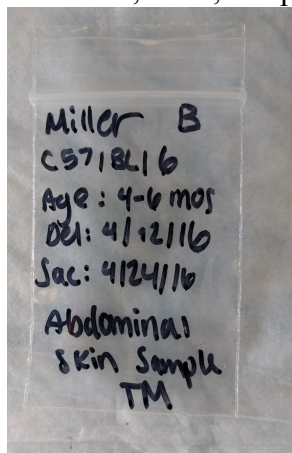 Miller B
C57/BL/6
Age: 4-6 mos
Del: 4/12/16
Sac: 4/24/16
Abdominal
Skin Sample
TM